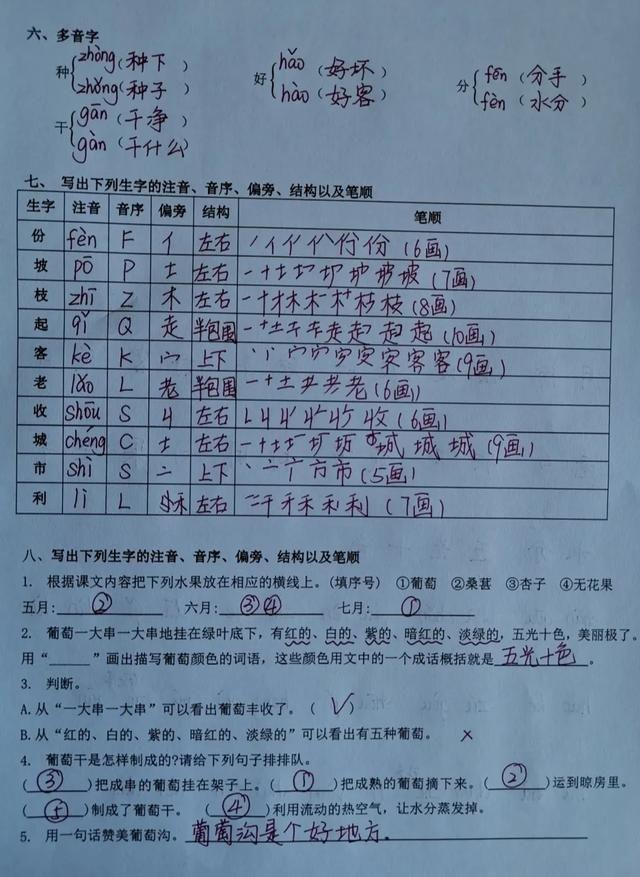 六、多音字
种 zhòng(种下) 好 hǎo(好坏) 分 fēn(分手)
zhǒng(种子) hào(好客) fèn(水分)
干 gān(干净)
gàn(干什么)
七、 写出下列生字的注音、音序、偏旁、结构以及笔顺
生字 注音 音序 偏旁 结构 笔顺
份 fèn F 亻 左右 份(6画)
坡 pō P 土 左右 坡(7画)
枝 zhī Z 木 左右 枝(8画)
起 qǐ Q 走 半包围 起(10画)
客 kè K 宀 上下 客(9画)
老 lǎo L 老 半包围 老(6画)
收 shōu S 左右 收(6画)
城 chéng C 土 左右 城 城 城(9画)
市 shì S 上下 市(5画)
利 lì L 禾 左右 利(7画)
八、写出下列生字的注音、音序、偏旁、结构以及笔顺
1. 根据课文内容把下列水果放在相应的横线上。(填序号) ①葡萄 ②桑葚 ③杏子 ④无花果
五月:②六月:③④七月:①
2. 葡萄一大串一大串地挂在绿叶底下,有红的、白的、紫的、暗红的、淡绿的,五光十色,美丽极了。
用“______”画出描写葡萄颜色的词语,这些颜色用文中的一个成话概括就是五光十色。
3. 判断。
A.从“一大串一大串”可以看出葡萄丰收了。(√)
B.从“红的、白的、紫的、暗红的、淡绿的”可以看出有五种葡萄。 ×
4. 葡萄干是怎样制成的?请给下列句子排排队。
(③)把成串的葡萄挂在架子上。(①)把成熟的葡萄摘下来。(②)运到晾房里。
(⑤)制成了葡萄干。 (④)利用流动的热空气,让水分蒸发掉。
5. 用一句话赞美葡萄沟。葡萄沟是个好地方。